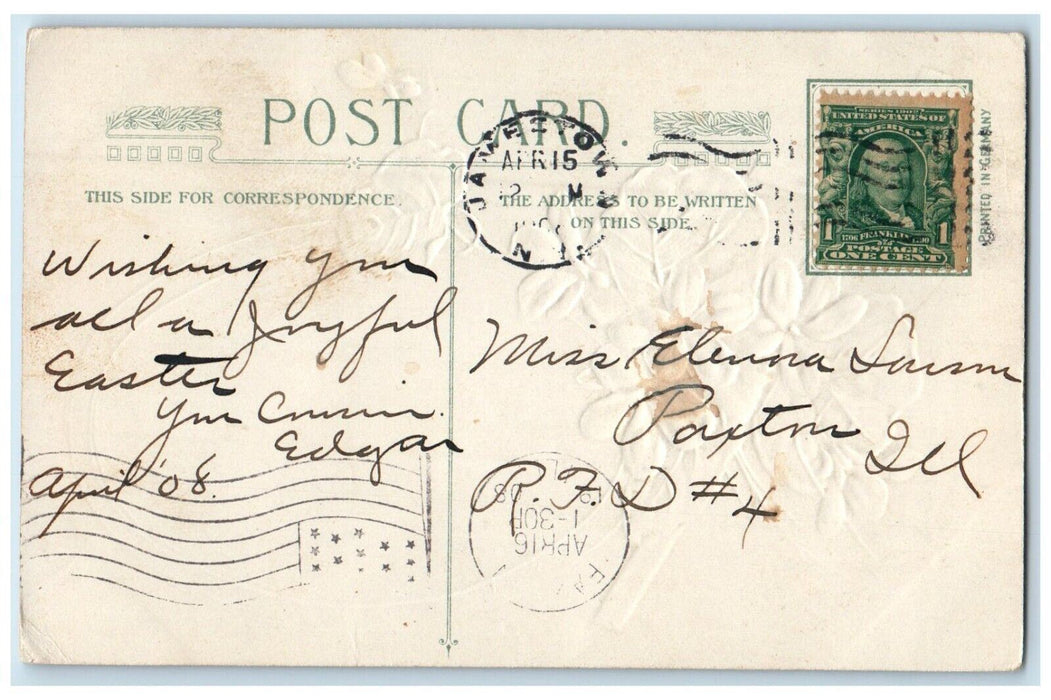 POST CARD.
THIS SIDE FOR CORRESPONDENCE.
THE ADDRESS TO BE WRITTEN
ON THIS SIDE.
JAMESTOWN
APR 15
M
N.Y.
SERIES 1902
UNITED STATES OF
AMERICA
1 FRANKLIN 1
POSTAGE
ONE CENT
PRINTED IN GERMANY
Wishing you
all a Joyful
Easter
Your Cousin.
Edgar
April '08.
Miss Elenora
Paxton Ill
R.F.D #4
APR 16
1-30P
1908